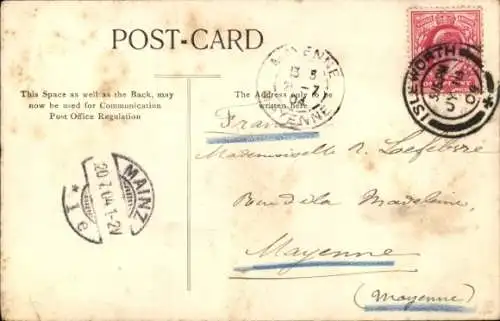 POST-CARD
This Space as well as the Back, may
now be used for Communication
Post Office Regulation
The Address only to be
written here.
MAYENNE
13 5
7
04
MAYENNE
ISLEWORTH
5
04
MAINZ
20.7.04.1-2V
* 1e
France
Mademoiselle Lefebvre
Rue de la Madeleine,
Mayenne
(Mayenne)